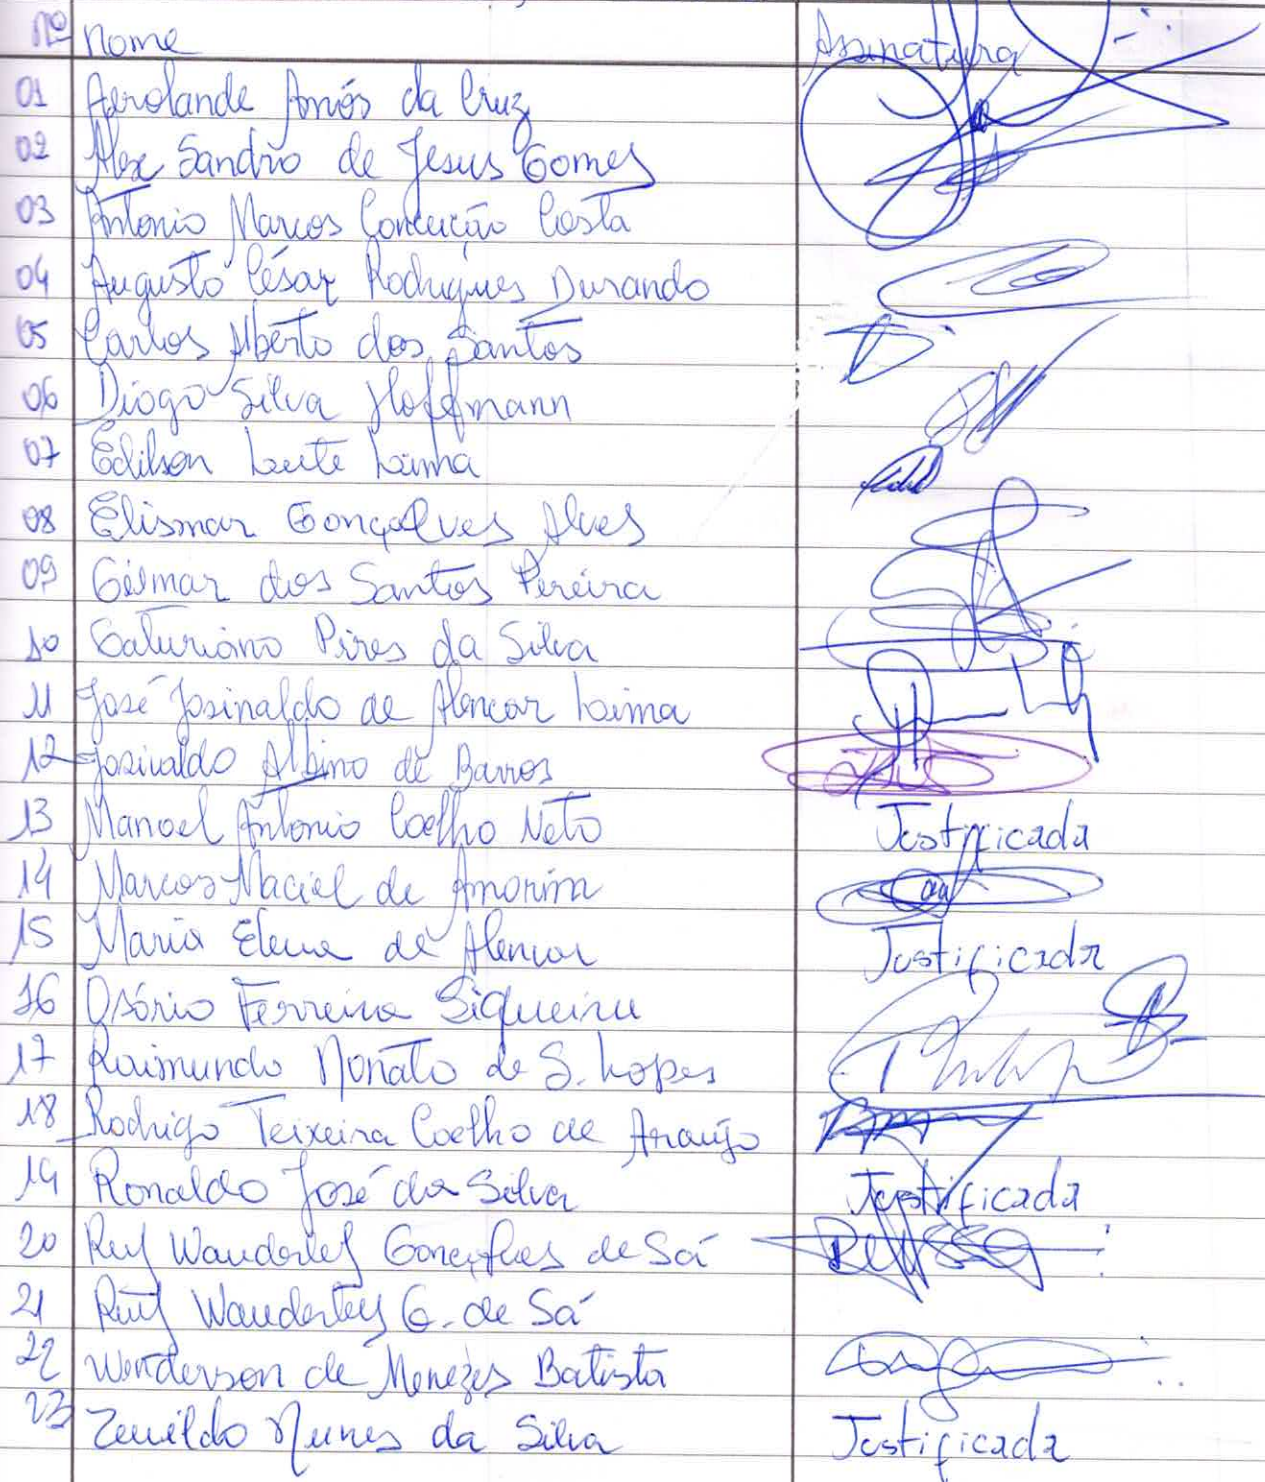 Nº Nome Assinatura
01 Aerolande Amós da Cruz
02 Alex Sandro de Jesus Gomes
03 Antonio Marcos Conceição Costa
04 Augusto César Rodrigues Durando
05 Carlos Alberto dos Santos
06 Diogo Silva Hoffmann
07 Edilson Leite Lima
08 Elismar Gonçalves Alves
09 Gilmar dos Santos Pereira
10 Gaturiano Pires da Silva
11 José Josinaldo de Alencar Lima
12 Josivaldo Albino de Barros
13 Manoel Antonio Coelho Neto Justificada
14 Marcos Maciel de Amorim
15 Maria Elena de Alencar Justificada
16 Osório Ferreira Siqueira
17 Raimundo Nonato de S. Lopes
18 Rodrigo Teixeira Coelho de Araújo
19 Ronaldo José da Silva Justificada
20 Ruy Wanderley Gonçalves de Sá
21 Ruy Wanderley G. de Sá
22 Wenderson de Menezes Batista
23 Zenildo Nunes da Silva Justificada